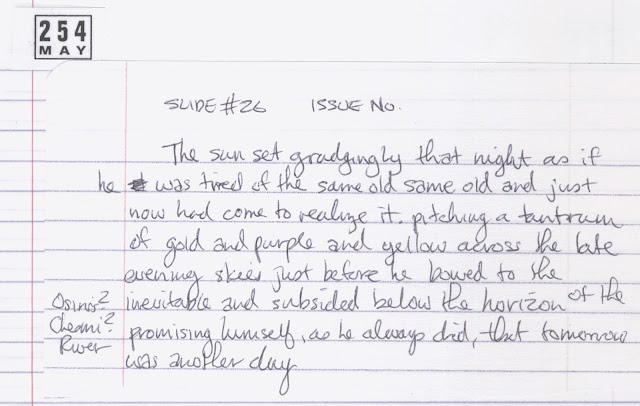 254
MAY
SLIDE #26 ISSUE NO.
The sun set grudgingly that night as if
he was tired of the same old same old and just
now had come to realize it. pitching a tantrum
of gold and purple and yellow across the late
evening skies just before he bowed to the
inevitable and subsided below the horizon of the
promising himself, as he always did, that tomorrow
was another day
River